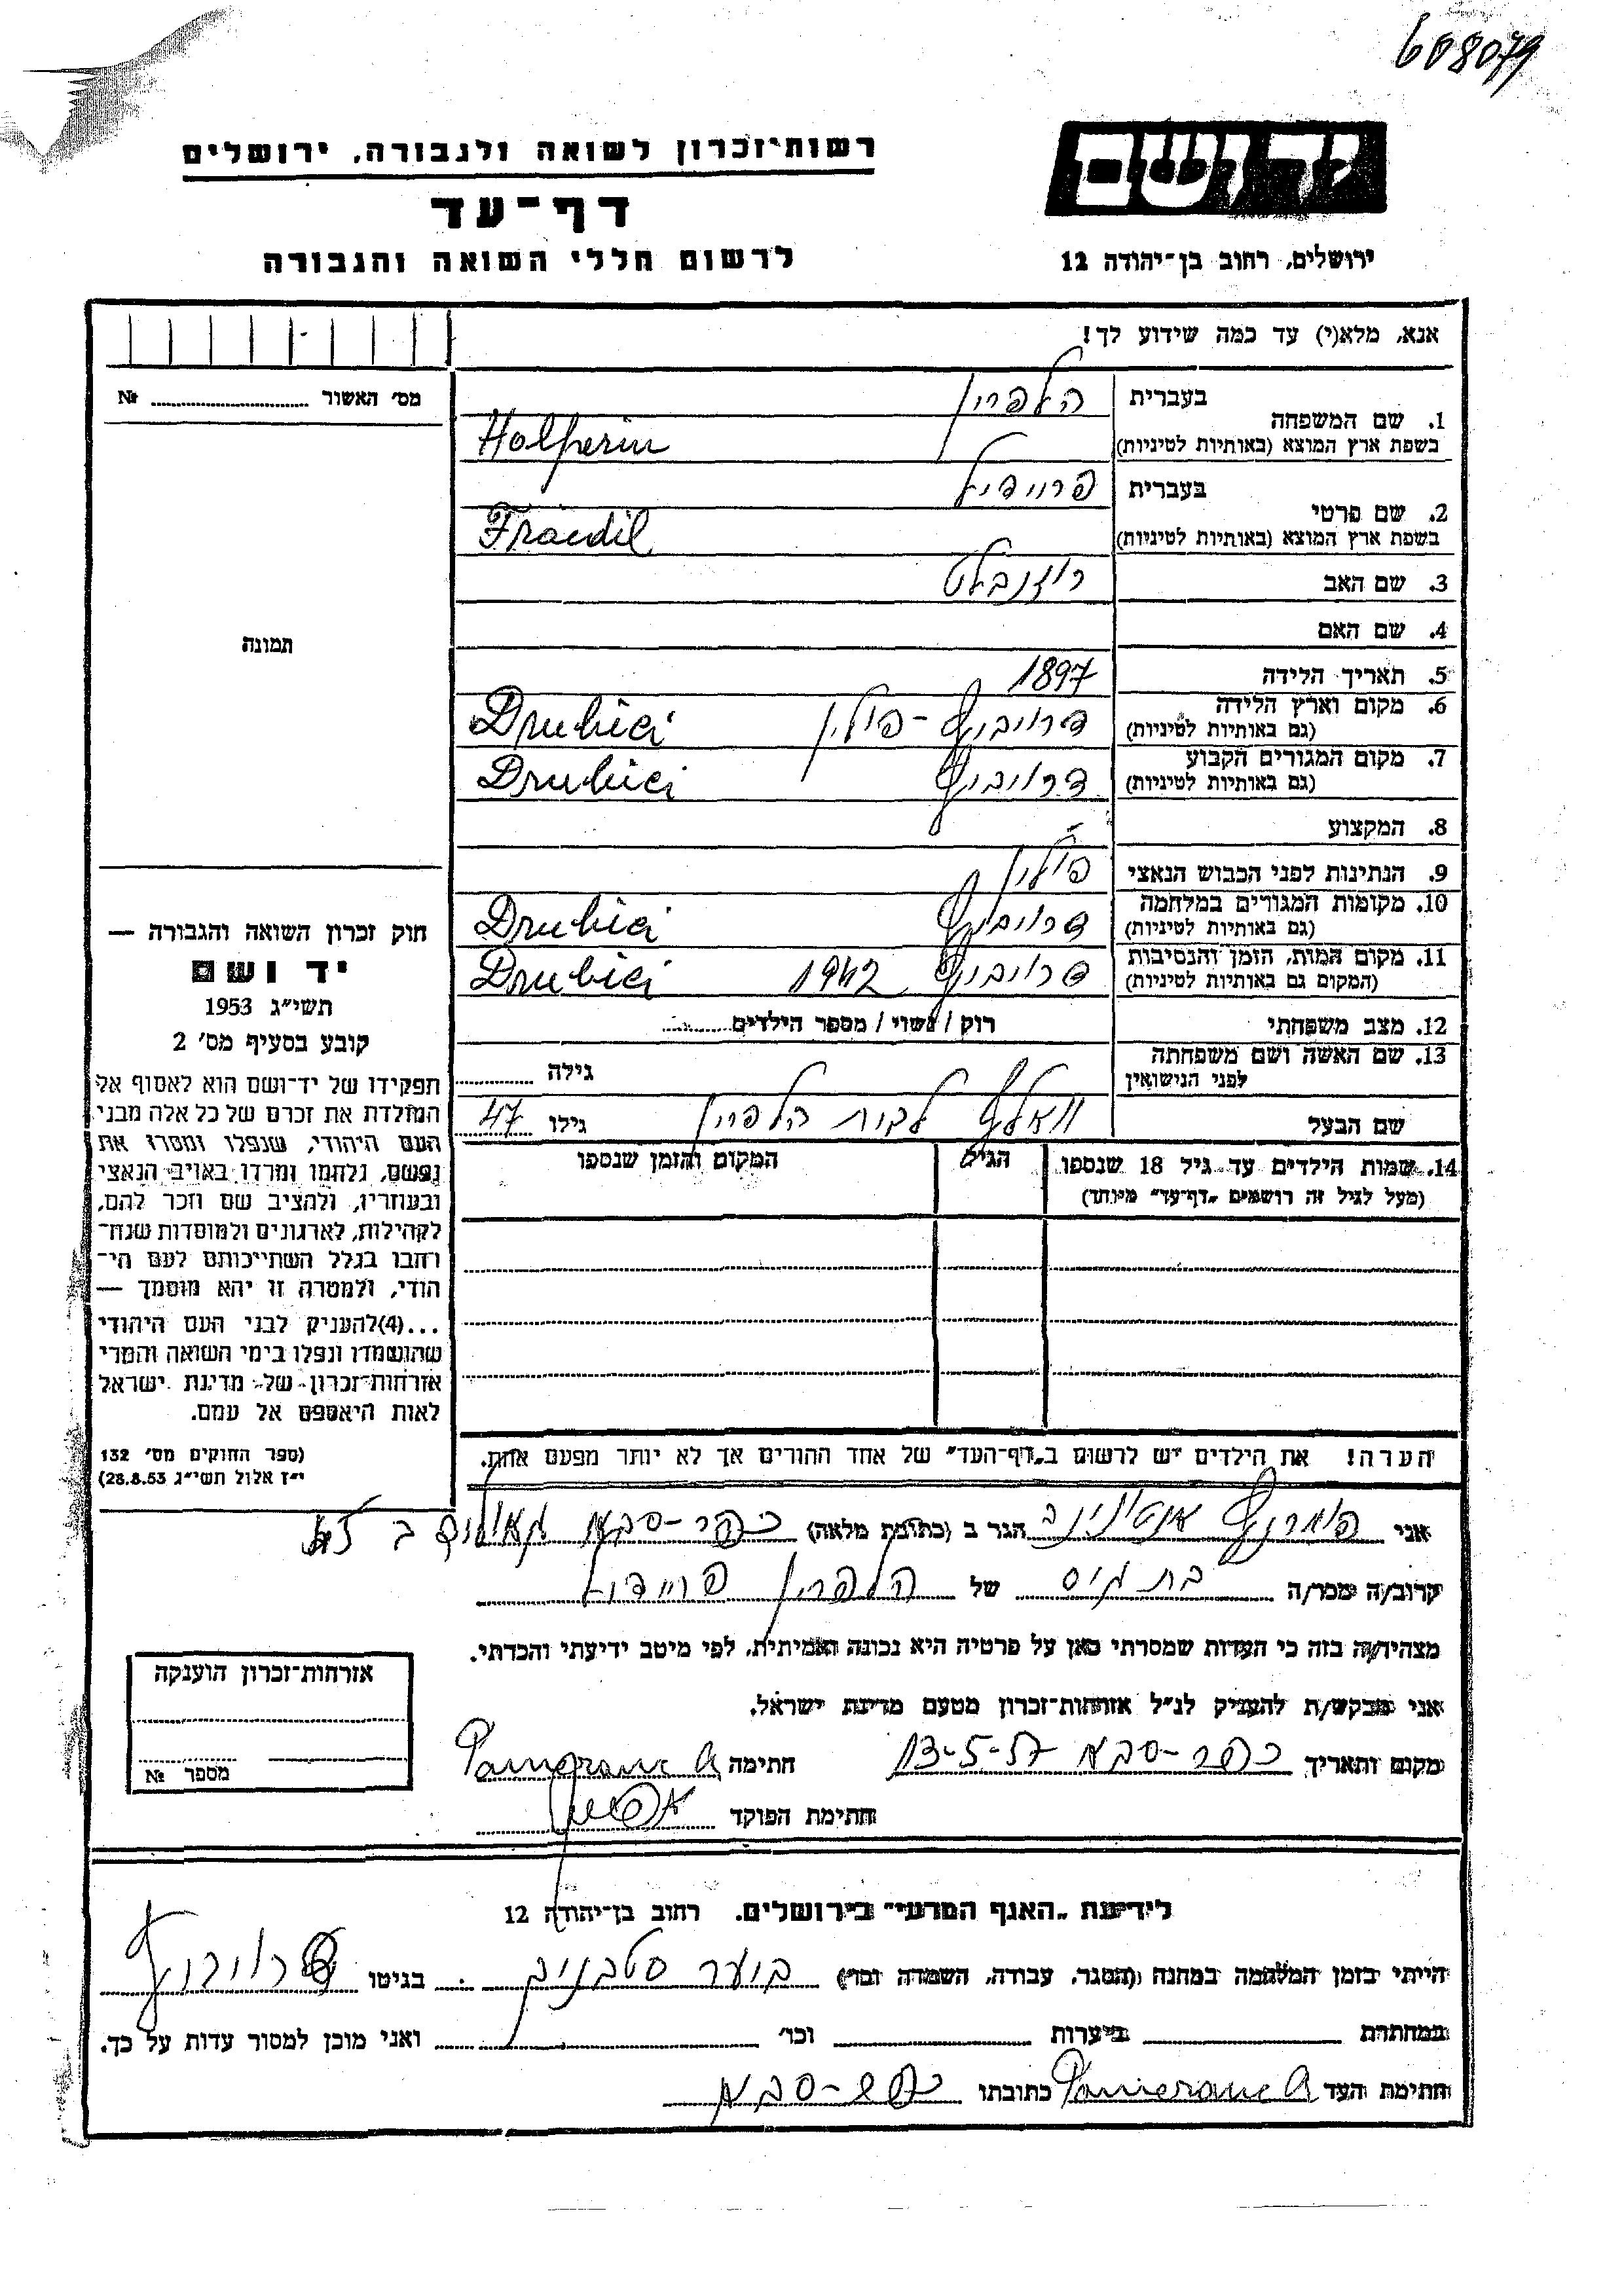 608079
רשות־זכרון לשואה ולגבורה, ירושלים
דף־עד
לרשום חללי השואה והגבורה
יד ושם
ירושלים, רחוב בן־יהודה 12
אנא, מלא(י) עד כמה שידוע לך!
מס׳ האשור № 
1. שם המשפחה בעברית הלפרין
בשפת ארץ המוצא (באותיות לטיניות) Holperin
2. שם פרטי בעברית פריידיל
בשפת ארץ המוצא (באותיות לטיניות) Fraedil
3. שם האב רוזנבלט
4. שם האם
תמונה
5. תאריך הלידה 1897
6. מקום וארץ הלידה (גם באותיות לטיניות) דרויביץ־פולין Drubici
7. מקום המגורים הקבוע (גם באותיות לטיניות) דרויביץ Drubici
8. המקצוע
9. הנתינות לפני הכבוש הנאצי פולין
10. מקומות המגורים במלחמה (גם באותיות לטיניות) דרויביץ Drubici
11. מקום המות, הזמן והנסיבות (המקום גם באותיות לטיניות) דרויביץ 1942 Drubici
12. מצב משפחתי רוק / נשוי / מספר הילדים
13. שם האשה ושם משפחתה לפני הנישואין גילה
שם הבעל הלפרין גילו 47
14. שמות הילדים עד גיל 18 שנספו הגיל המקום והזמן שנספו
(מעל לגיל זה רושמים „דף־עד״ מיוחד)
חוק זכרון השואה והגבורה —
יד ושם
תשי״ג 1953
קובע בסעיף מס׳ 2
תפקידו של יד־ושם הוא לאסוף אל
המולדת את זכרם של כל אלה מבני
העם היהודי, שנפלו ומסרו את
נפשם, נלחמו ומרדו באויב הנאצי
ובעוזריו, ולהציב שם וזכר להם,
לקהילות, לארגונים ולמוסדות שנח־
רחבו בגלל השתייכותם לעם הי־
הודי, ולמטרה זו יהא מוסמך —
...(4)להעניק לבני העם היהודי
שהושמדו ונפלו בימי השואה והמרי
אזרחות־זכרון של מדינת ישראל
לאות היאספם אל עמם.
(ספר החוקים מס׳ 132
י״ז אלול תשי״ג 28.8.53)
הערה! את הילדים יש לרשום ב„דף־העד״ של אחד ההורים אך לא יותר מפעם אחת.
אני הגר ב (כתובת מלאה) כפר־סבא
קרוב/ה מכר/ה בת גיס של הלפרין פריידיל
מצהיר/ה בזה כי העדות שמסרתי כאן על פרטיה היא נכונה ואמיתית, לפי מיטב ידיעתי והכרתי.
אני מבקש/ת להעניק לנ״ל אזרחות־זכרון מטעם מדינת ישראל.
מקום ותאריך כפר־סבא 13-5-57 חתימה Pomeranc A
חתימת הפוקד
אזרחות־זכרון הוענקה
מספר №
לידיעת „האגף המדעי״ בירושלים, רחוב בן־יהודה 12
הייתי בזמן המלחמה במחנה (הסגר, עבודה, השמדה וכו׳) בגיטו דרויביץ
במחתרת ביערות וכו׳ ואני מוכן למסור עדות על כך.
חתימת העד Pomeranc A כתובתו כפר־סבא